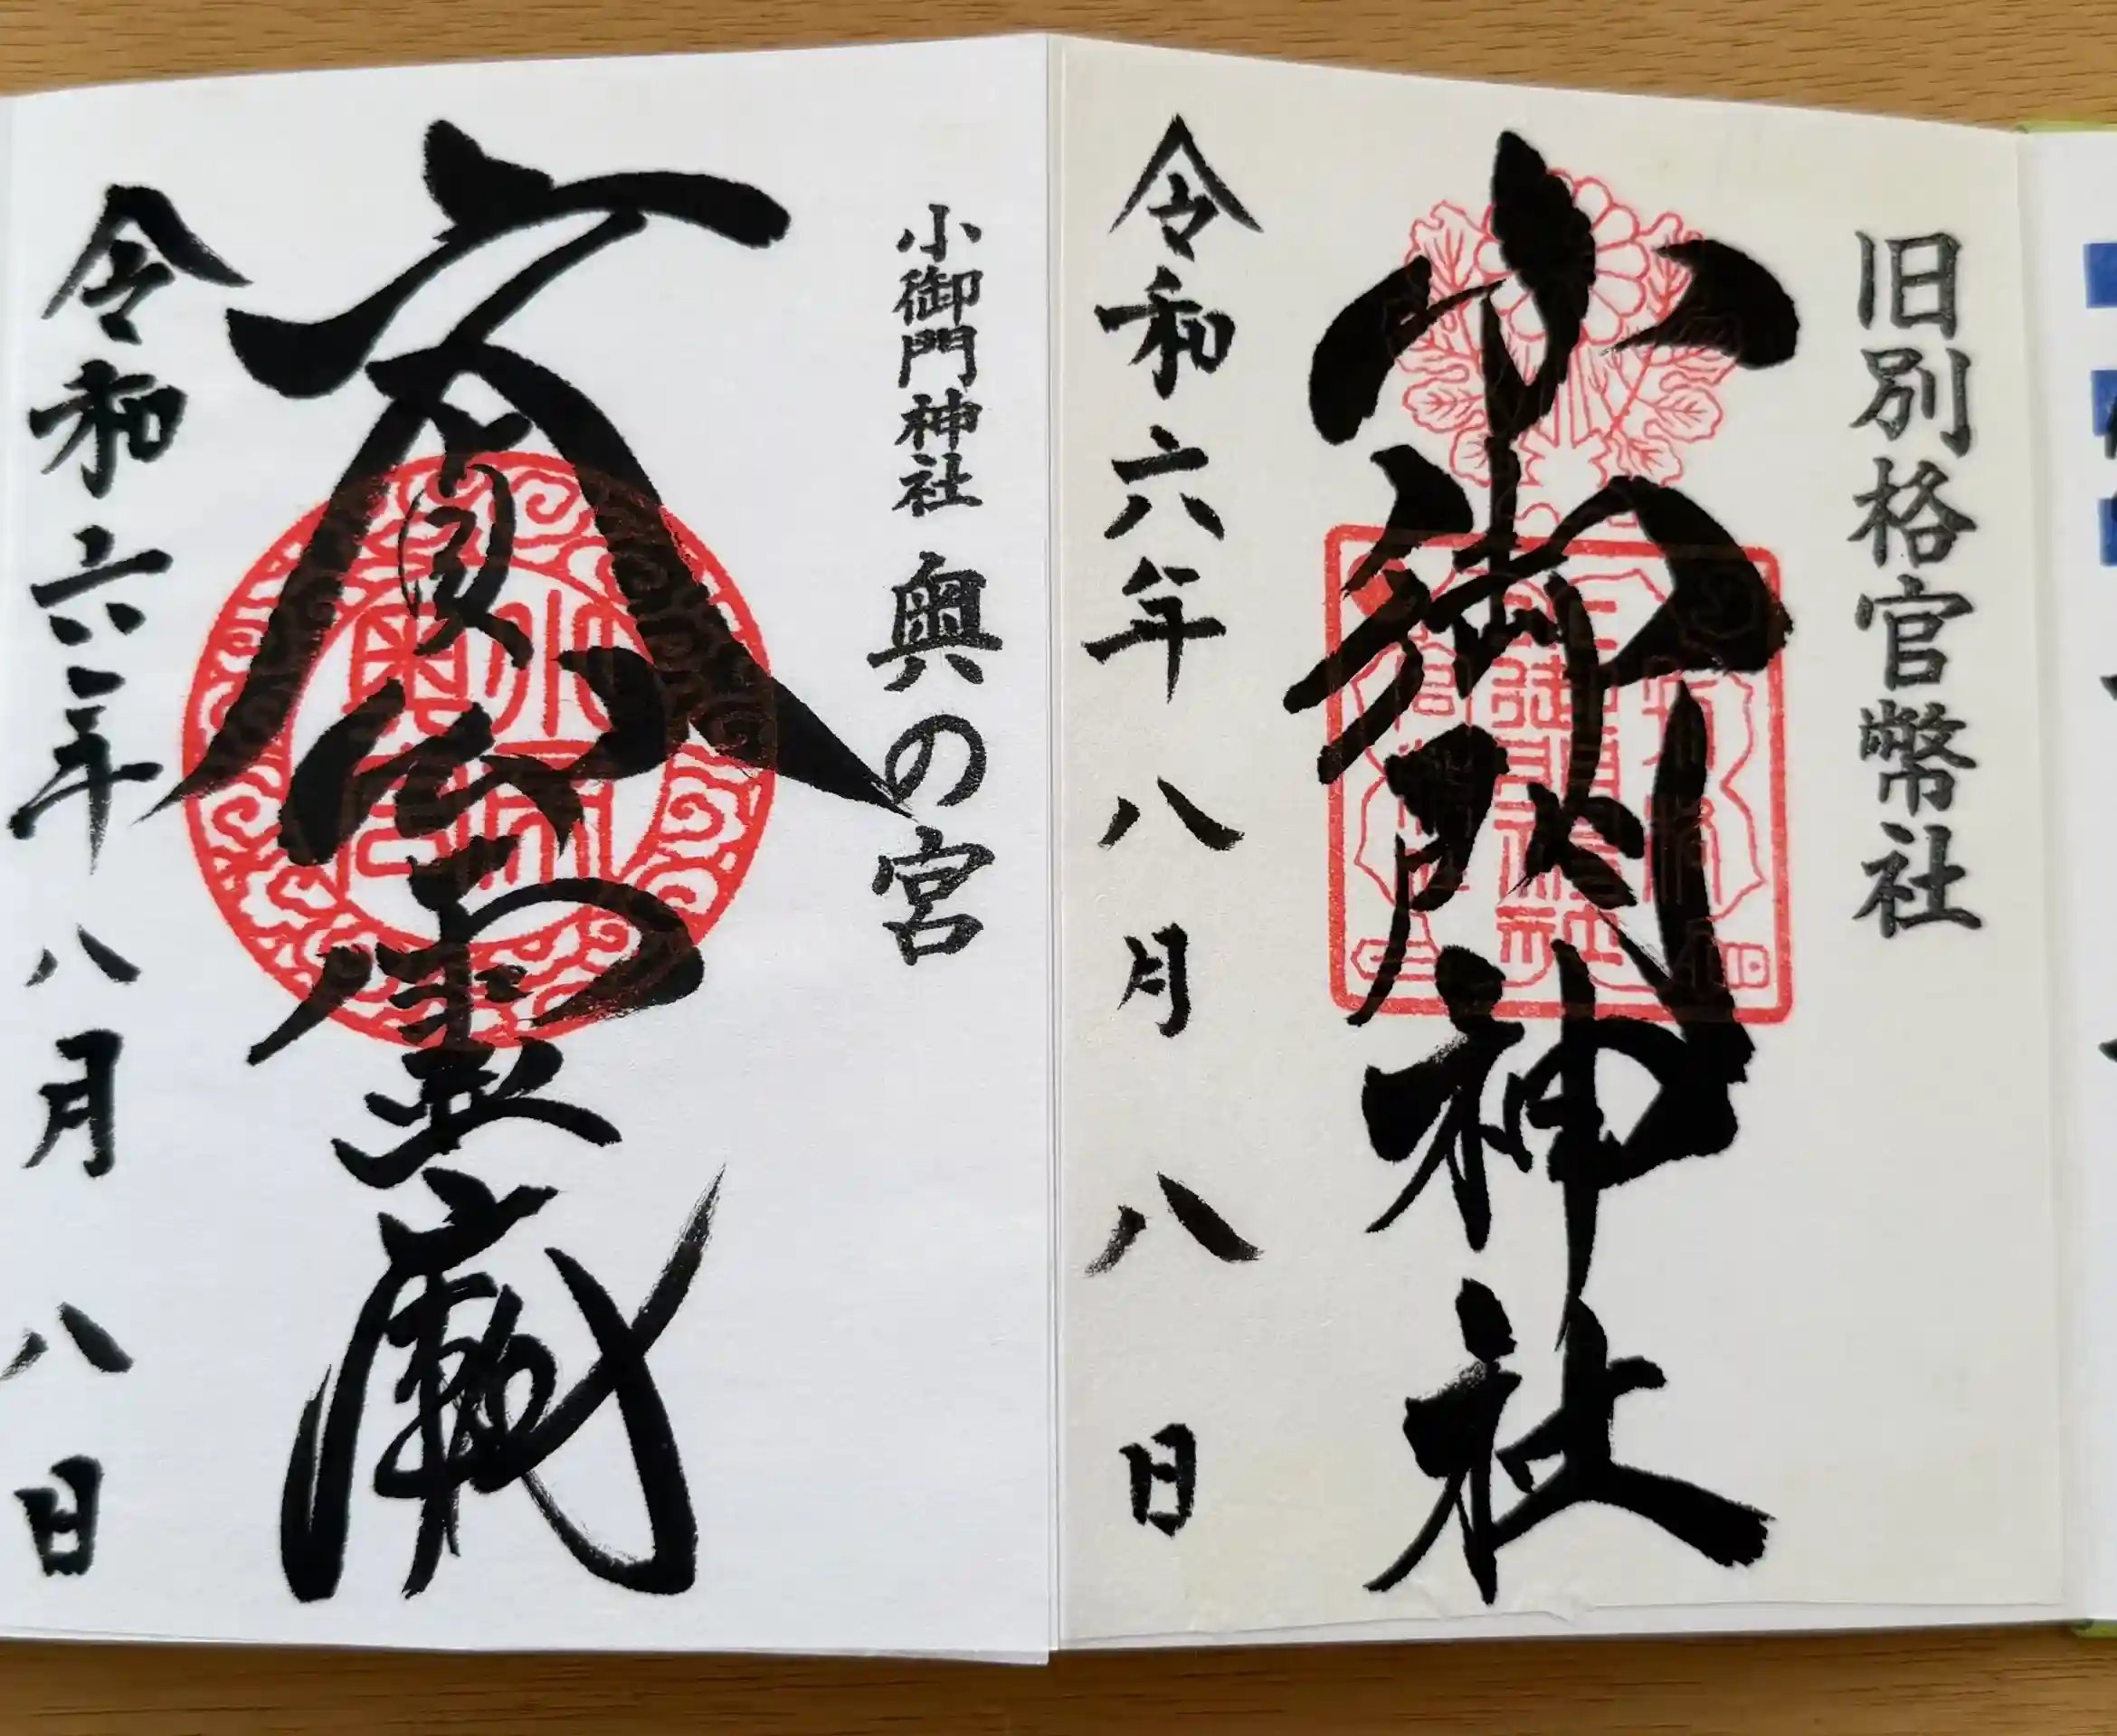 旧別格官幣社
小御門神社
令和六年八月八日
小御門神社 奥の宮
文貞公霊蔵
令和六年八月八日